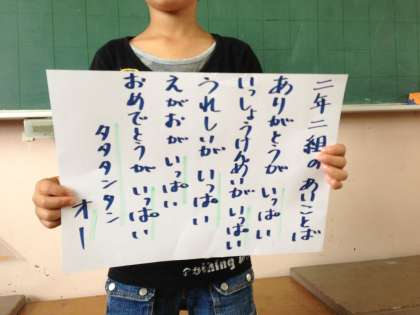 二年二組の あいことば
ありがとうが いっぱい
いっしょうけんめいが いっぱい
うれしいが いっぱい
えがおが いっぱい
おめでとうが いっぱい
タタタンタン
オー